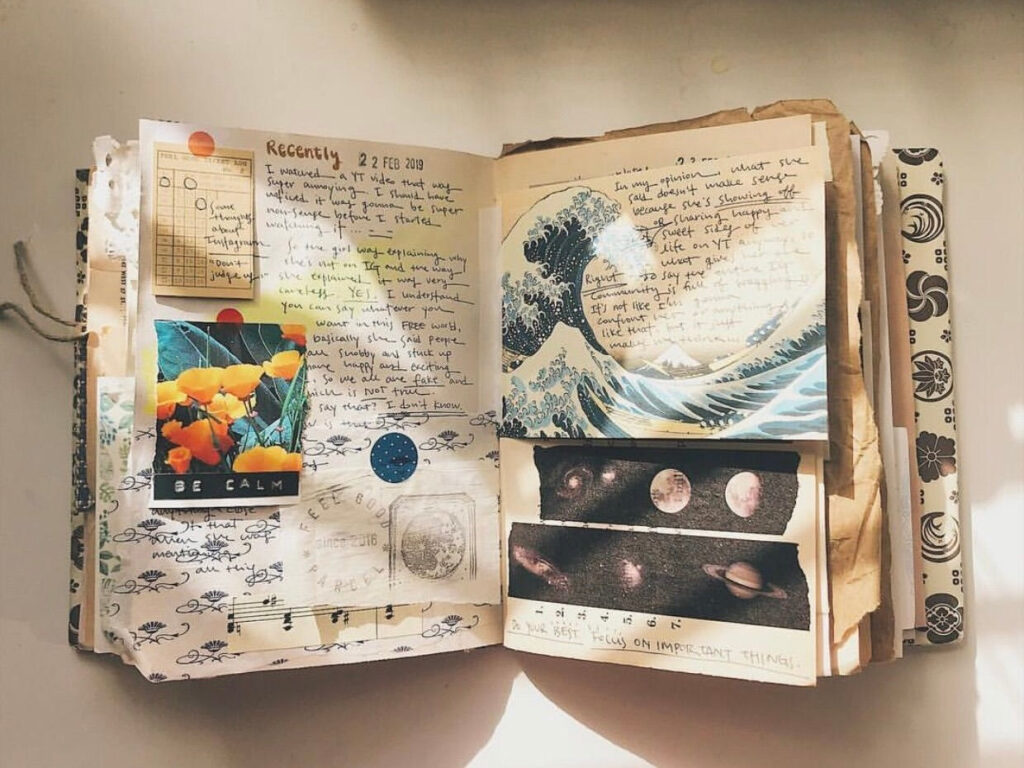 Recently
22 FEB 2019
I watched a YT video that was
super annoying. I should have
noticed it was gonna be super
non-sense before I started
watching it...
So the girl was explaining why
she's out on IG and the way
she explained it was very
careless. YES. I understand
you can say whatever you
want in this FREE world,
basically she said people
are snobby and stuck up
have happy and exciting
so we all are fake and
which is NOT true.
say that? I don't know.
is that
Some
thoughts
about
Instagram
"Don't
judge us"
BE CALM
anything close
to that
when she was
mentioning
all this
FEEL GOOD
since 2016
PARCEL
In my opinion, what she
said doesn't make sense
because she's showing off
or sharing happy
sweet sides of
life on YT
what give
Right to say the
community is full of bragging
It's not like I'm gonna
confront
like that, but it
makes me
1. 2. 3. 4. 5. 6. 7.
DO YOUR BEST FOCUS ON IMPORTANT THINGS.